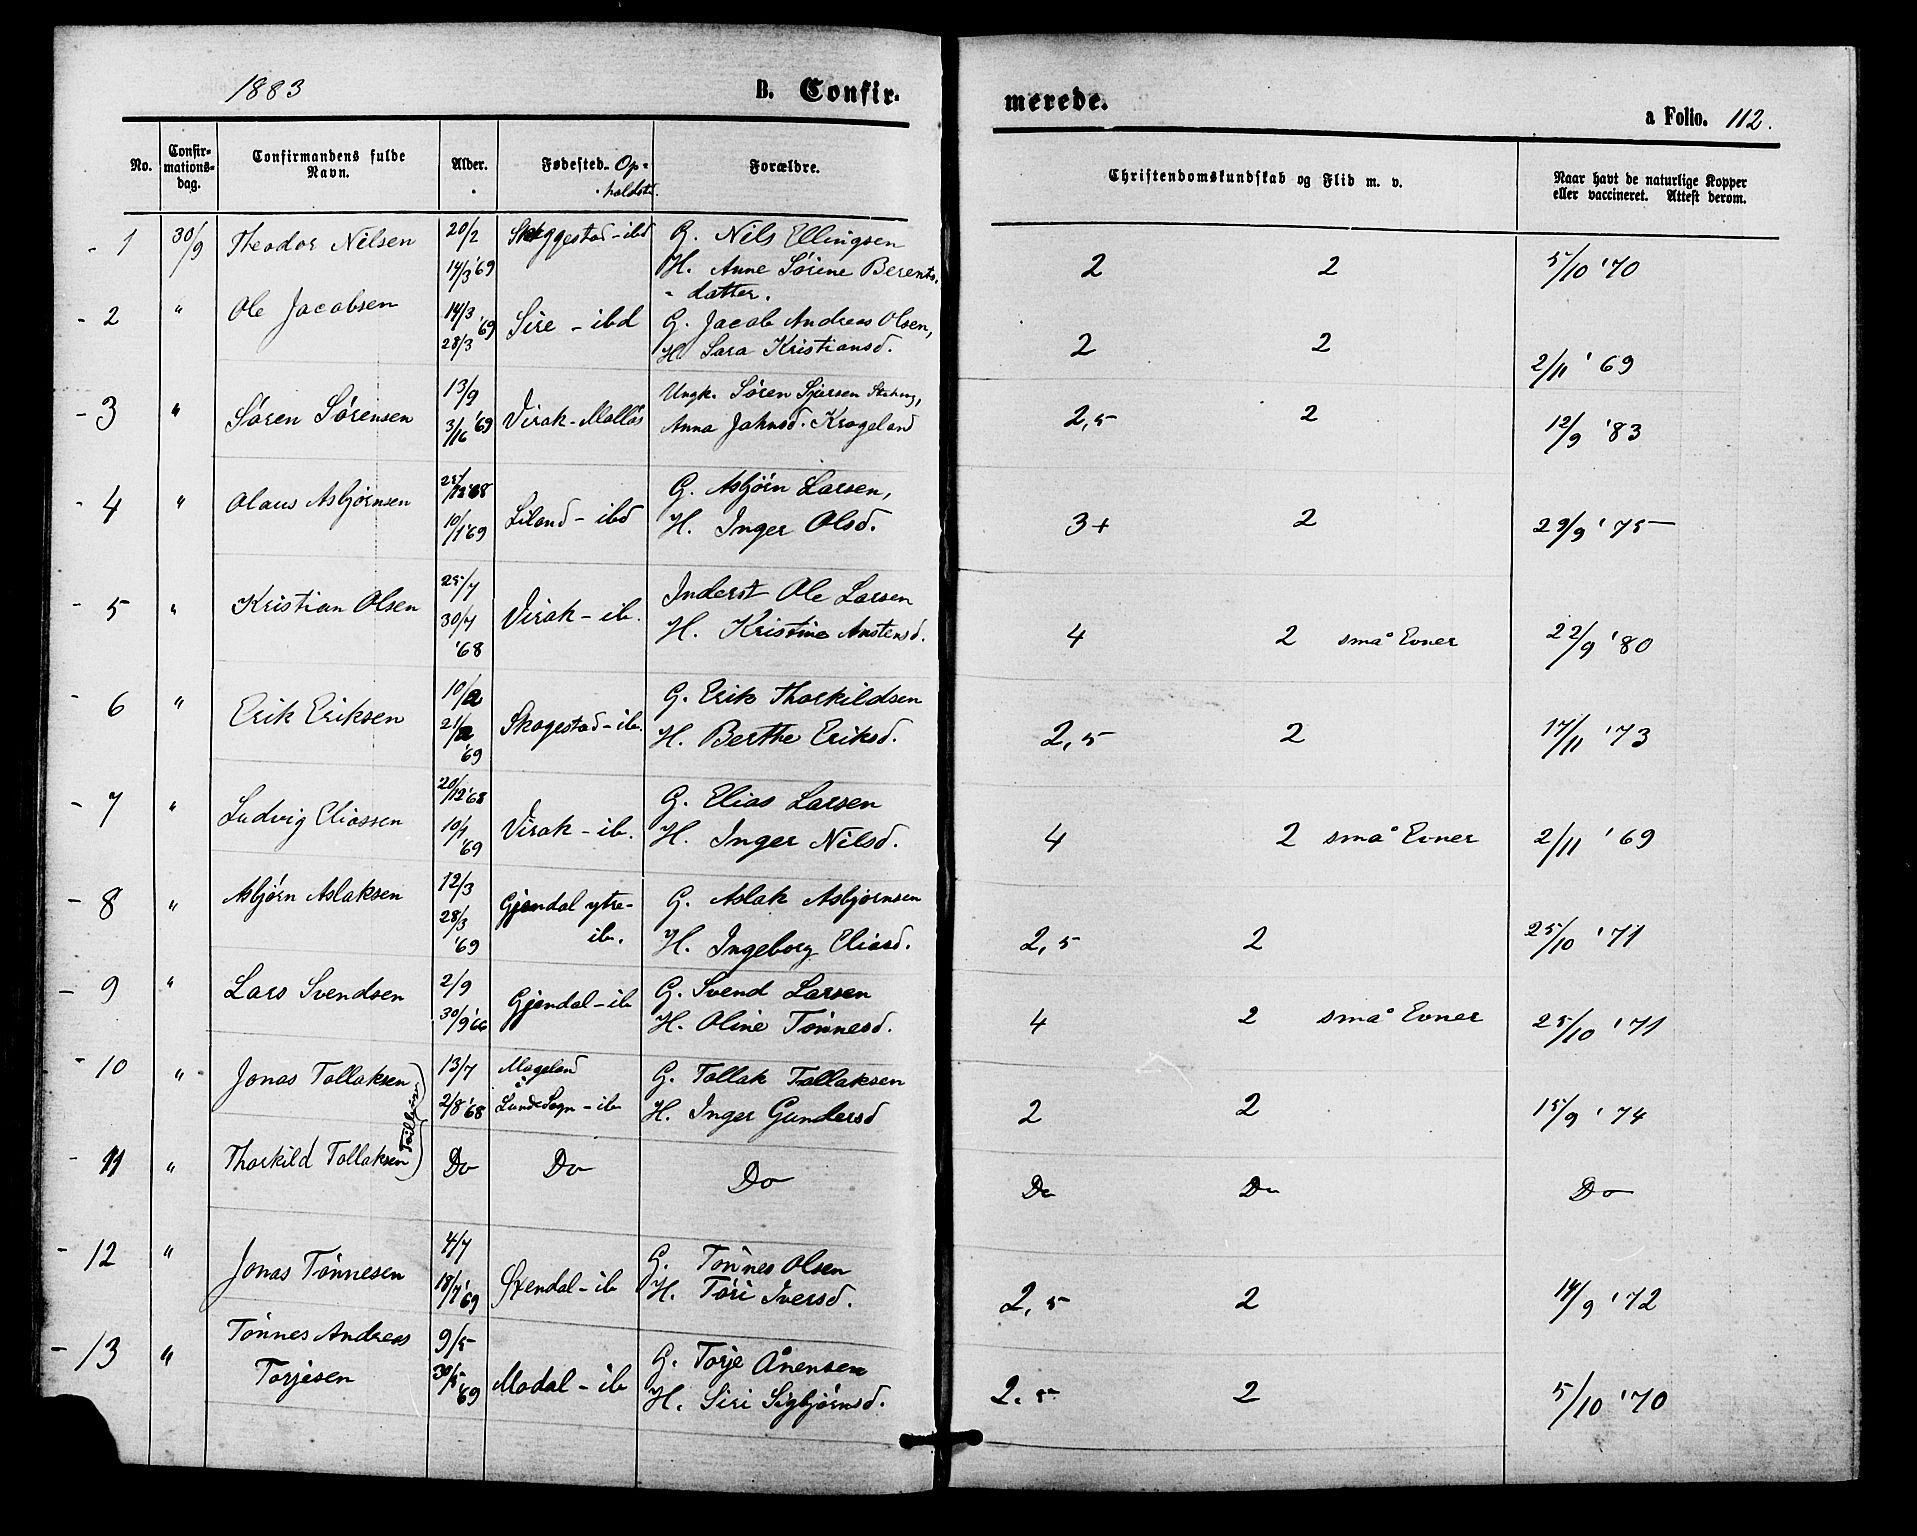 1883
B. Confir-
merede.
a Folio. 112.
No.
Confir-
mations-
dag.
Confirmandens fulde
Navn.
Alder.
Fødested. Op-
holdst.
Forældre.
Christendomskundskab og Flid m. v.
Naar havt de naturlige Kopper
eller vaccineret. Attest derom.
- 1 30/9 Theodor Nilsen 20/2 14/3 '69 Skeggestad - ibd G. Nils Ellingsen
H. Anne Sørine Berents-
datter. 2 2 5/10 '70
- 2 " Ole Jacobsen 14/3 28/3 '69 Sire - ibd G. Jacob Andreas Olsen,
H. Sara Kristiansd. 2 2 2/11 '69
- 3 " Søren Sørensen 13/9 3/16 '69 Virak - Mollås Ungk. Søren Sjursen
Anna Johnsd. Krageland 2,5 2 12/9 '83
- 4 " Olaus Asbjørnsen 25/12 '68 10/1 '69 Liland - ibd G. Asbjørn Larsen,
H. Inger Olsd. 3+ 2 29/9 '75
- 5 " Kristian Olsen 25/7 30/7 '68 Virak - ib. Inderst Ole Larsen
H. Kristine Anstensd. 4 2 små Evner 22/9 '80
- 6 " Erik Eriksen 10/2 21/2 '69 Skogestad - ib. G. Erik Thorkildsen
H. Berthe Eriksd. 2,5 2 17/11 '73
- 7 " Ludvig Eliassen 20/12 '68 10/1 '69 Virak - ib. G. Elias Larsen
H. Inger Nilsd. 4 2 små Evner 2/11 '69
- 8 " Asbjørn Aslaksen 12/3 28/3 '69 Gjendal ytre -
ib. G. Aslak Asbjørnsen
H. Ingeborg Eliasd. 2,5 2 25/10 '71
- 9 " Lars Svendsen 2/9 30/9 '66 Gjendal - ib G. Svend Larsen
H. Oline Tønnesd. 4 2 små Evner 25/10 '71
- 10 " Jonas Tollaksen 13/7 2/8 '68 Mageland
Lunde Sogn - ib G. Tollak Tollaksen
H. Inger Gundersd 2 2 15/9 '74
- 11 " Thorkild Tollaksen Do Do Do Do Do Do
- 12 " Jonas Tønnesen 4/7 18/7 '69 Øxendal - ib G. Tønnes Olsen
H. Tøri Iversd. 2,5 2 14/9 '72
- 13 " Tønnes Andreas
Torjesen 9/5 30/5 '69 Modal - ib G. Torje Ånensen
H. Siri Sigbjørnsd. 2.5 2 5/10 '70